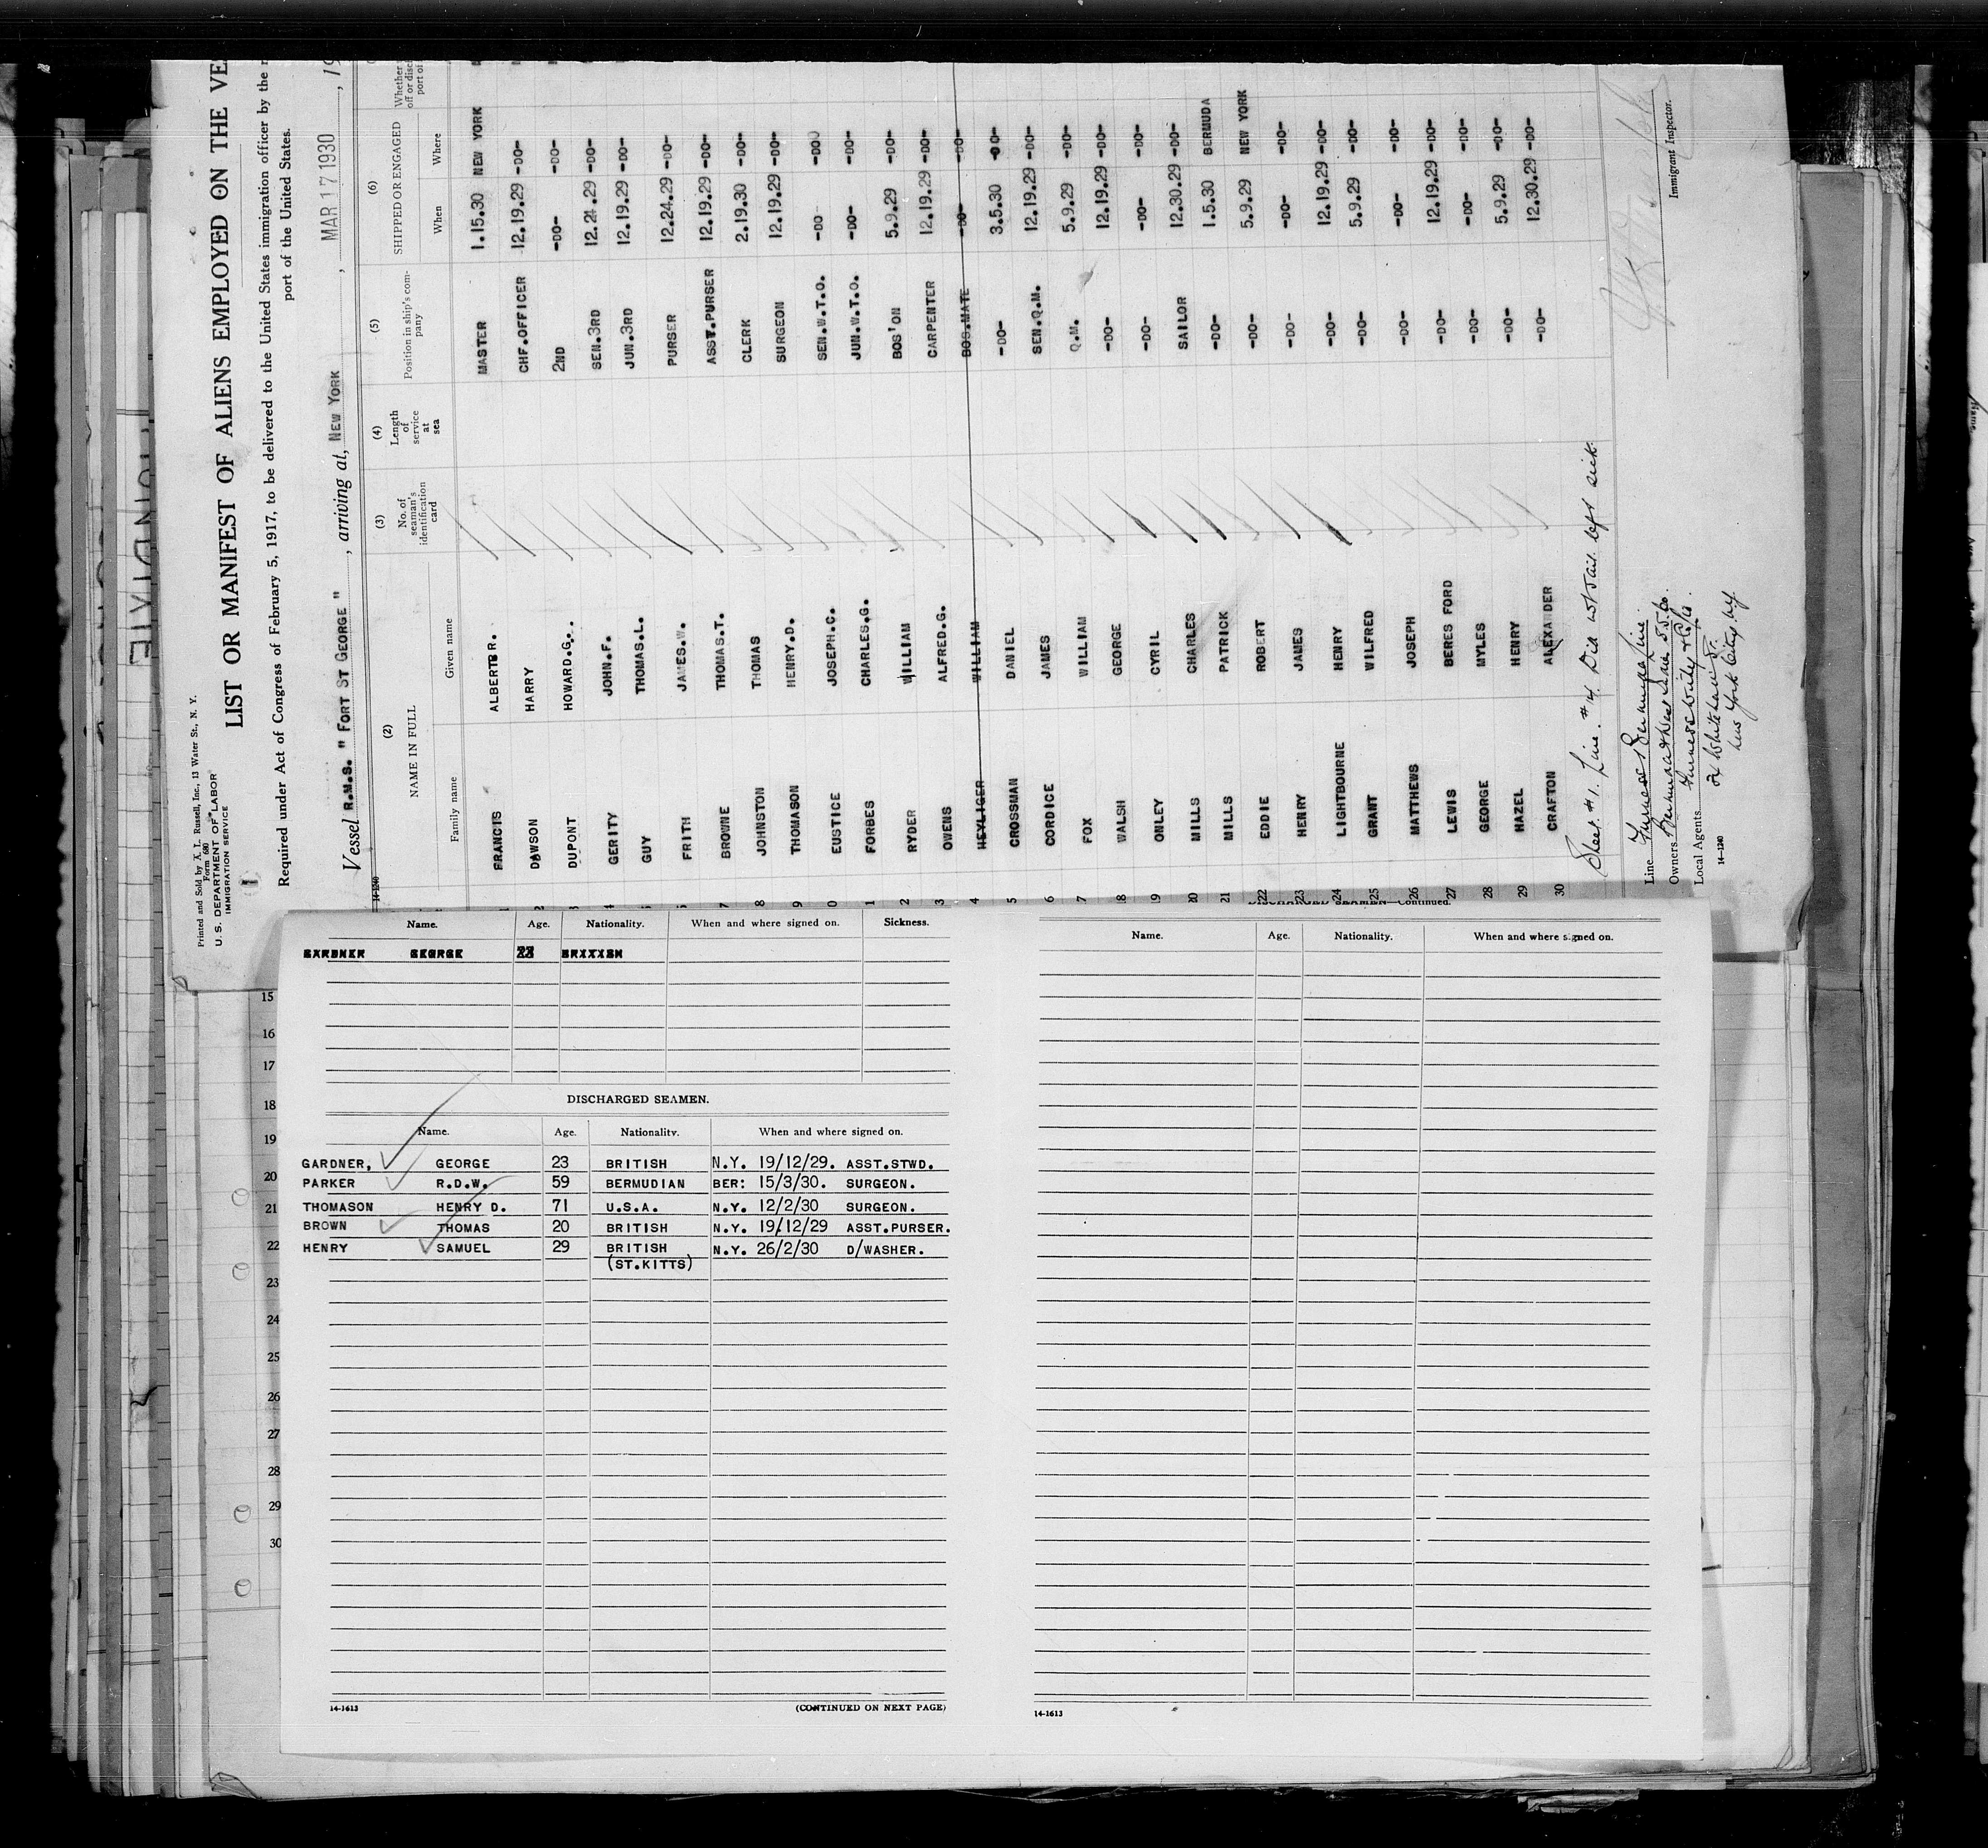 Printed and Sold by A. L. Russell, Inc., 13 Water St., N. Y.
Form 680
U. S. DEPARTMENT OF LABOR
IMMIGRATION SERVICE
1
LIST OR MANIFEST OF ALIENS EMPLOYED ON THE VE
Required under Act of Congress of February 5, 1917, to be delivered to the United States immigration officer by the r
port of the United States.
Vessel R.M.S. " FORT ST GEORGE " , arriving at, NEW YORK , MAR 17 1930 , 19
14-1240
(2) (3) (4) (5) (6)
NAME IN FULL No. of seaman's identification card Length of service at sea Position in ship's com- pany SHIPPED OR ENGAGED Whether
Family name Given name When Where
1 FRANCIS ALBERT R. MASTER 1.15.30 NEW YORK
2 DAWSON HARRY CHF.OFFICER 12.19.29 -DO-
3 DUPONT HOWARD.G.. 2ND -DO- -DO-
4 GERITY JOHN.F. SEN.3RD 12.24.29 -DO-
GUY THOMAS.L. JUN.3RD 12.19.29 -DO-
FRITH JAMES.W. PURSER 12.24.29 -DO-
7 BROWNE THOMAS.T. ASST.PURSER 12.19.29 -DO-
8 JOHNSTON THOMAS CLERK 2.19.30 -DO-
9 THOMASON HENRY.D. SURGEON 12.19.29 -DO-
0 EUSTICE JOSEPH.C. SEN.W.T.O. -DO -DO
1 FORBES CHARLES.G. JUN.W.T.O. -DO- -DO-
2 RYDER WILLIAM BOS'ON 5.9.29 -DO-
3 OWENS ALFRED.G. CARPENTER 12.19.29 -DO-
4 HEYLIGER WILLIAM BOS.MATE -DO- -DO-
5 CROSSMAN DANIEL -DO- 3.5.30 -DO-
6 CORDICE JAMES SEN.Q.M. 12.19.29 -DO-
7 FOX WILLIAM Q.M. 5.9.29 -DO-
18 WALSH GEORGE -DO- 12.19.29 -DO-
19 ONLEY CYRIL -DO- -DO- -DO-
20 MILLS CHARLES SAILOR 12.30.29 -DO-
21 MILLS PATRICK -DO- 1.5.30 BERMUDA
22 EDDIE ROBERT -DO- 5.9.29 NEW YORK
23 HENRY JAMES -DO- -DO- -DO-
24 LIGHTBOURNE HENRY -DO- 12.19.29 -DO-
25 GRANT WILFRED -DO- 5.9.29 -DO-
26 MATTHEWS JOSEPH -DO- -DO- -DO-
27 LEWIS BERES FORD -DO- 12.19.29 -DO-
28 GEORGE MYLES -DO- -DO- -DO-
29 HAZEL HENRY -DO- 5.9.29 -DO-
30 CRAFTON ALEXANDER -DO- 12.30.29 -DO-
Sheet #1. Line #4 Did not sail left sick
Line Furness Bermuda Line
Owners Bermuda & West Indies S.S.Co.
Local Agents Furness Withy & Co
34 Whitehall St.
New York City. N.Y.
14-1240
Immigrant Inspector.
Name. Age. Nationality. When and where signed on. Sickness.
GARDNER GEORGE 23 BRITISH
DISCHARGED SEAMEN.
Name. Age. Nationality. When and where signed on.
GARDNER, GEORGE 23 BRITISH N.Y. 19/12/29. ASST.STWD.
PARKER R.D.W. 59 BERMUDIAN BER: 15/3/30. SURGEON.
THOMASON HENRY D. 71 U.S.A. N.Y. 12/2/30 SURGEON.
BROWN THOMAS 20 BRITISH N.Y. 19/12/29 ASST.PURSER.
HENRY SAMUEL 29 BRITISH N.Y. 26/2/30 D/WASHER.
(ST.KITTS)
14-1613
(CONTINUED ON NEXT PAGE)
DISCHARGED SEAMEN—Continued.
Name. Age. Nationality. When and where signed on.
14-1613
15
16
17
18
19
20
21
22
23
24
25
26
27
28
29
30